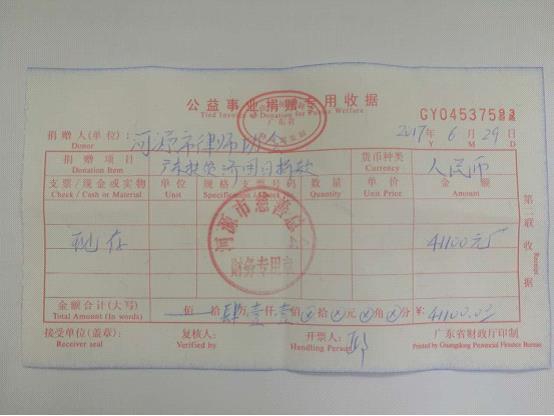 公益事业捐赠专用收据
Tied Invoice Donation for Public Welfare
广东省
GY04537593
捐赠人(单位): 河源市律师协会 2017年6月29日
Donor Y M D
捐赠项目 广东扶贫济困日捐款 货币种类 人民币
Donation Item Currency
支票/现金或实物 单位 规格 支票号码 数量 单价 金额
Check / Cash or Material Unit Specification Quantity Unit Price Amount
现存 41100元
河源市慈善总会
财务专用章
金额合计(大写) 佰 拾肆万壹仟壹佰⊗拾⊗元⊗角⊗分 ¥: 41100.00
Total Amount (In words)
接受单位(盖章): 复核人: 开票人: 邱 广东省财政厅印制
Receiver seal Verified by Handling Person Printed by Guangdong Provincial Finance Bureau
第二联 收据
Receipt